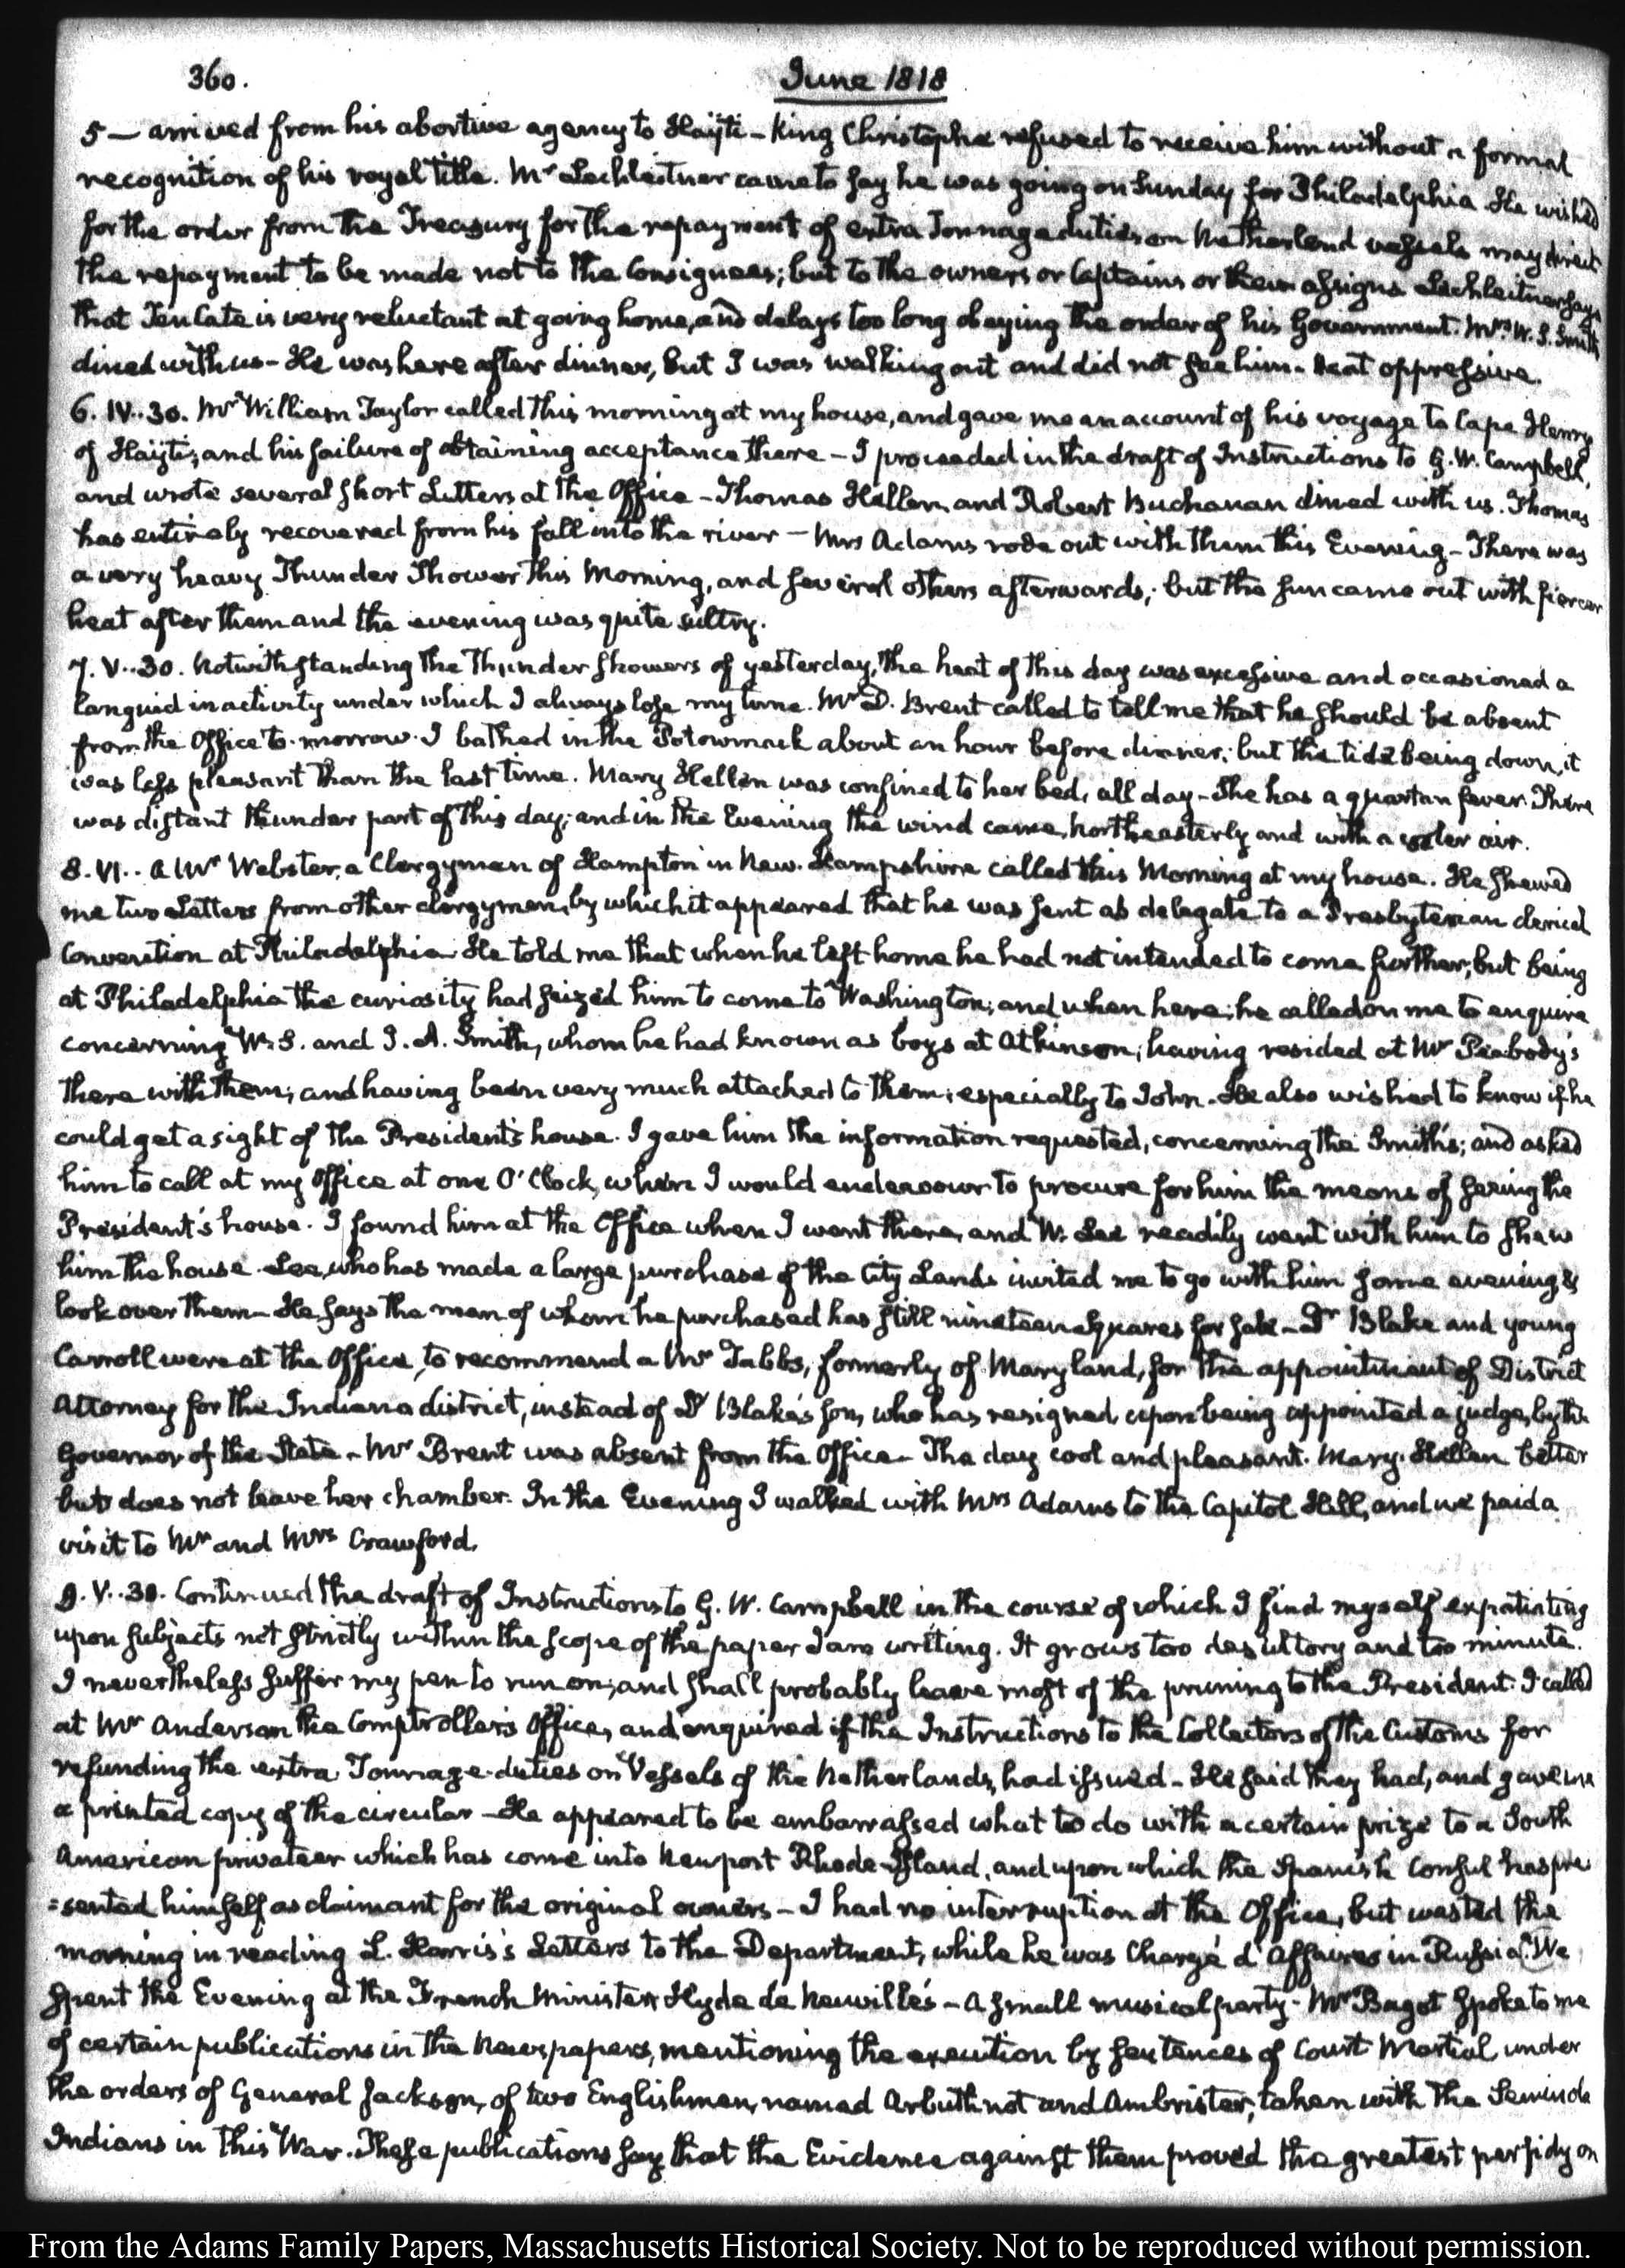 360.
June 1818
5 — arrived from his abortive agency to Haÿti – King Christophe refused to receive him without a formal
recognition of his royal title. Mr Lechleitner came to say he was going on Sunday for Philadelphia He wished
for the order from the Treasury for the repayment of extra Tonnage duties on Netherland vessels may direct
the repayment to be made not to the Consignees; but to the owners or Captains or their assigns Lechleitner says
that Ten Cate is very reluctant at going home, and delays too long obeying the order of his Government. Mrs. W. S. Smith
dined with us – He was here after dinner, but I was walking out and did not see him. Heat oppressive.
6. IV..30. Mr William Taylor called this morning at my house, and gave me an account of his voyage to Cape Henry
of Haÿti; and his failure of obtaining acceptance there – I proceeded in the draft of Instructions to G. W. Campbell,
and wrote several short Letters at the Office – Thomas Hellen, and Robert Buchanan dined with us. Thomas
has entirely recovered from his fall into the river – Mrs Adams rode out with them this Evening – There was
a very heavy Thunder Shower this Morning, and several others afterwards; but the sun came out with fiercer
heat after them and the evening was quite sultry.
7. V..30. Notwithstanding the Thunder showers of yesterday, the heat of this day was excessive and occasioned a
languid inactivity under which I always lose my time. Mr D. Brent called to tell me that he should be absent
from the Office to-morrow. I bathed in the Potowmack about an hour before dinner; but the tide being down, it
was less pleasant than the last time. Mary Hellen was confined to her bed, all day – She has a quartan fever. There
was distant thunder part of this day; and in the Evening the wind came, northeasterly and with a cooler air.
8. VI.. A Mr Webster, a Clergyman of Hampton in New-Hampshire called this Morning at my house. He shewed
me two Letters from other clergymen, by which it appeared that he was sent as delegate to a Presbyterian clerical
Convention at Philadelphia. He told me that when he left home he had not intended to come further, but being
at Philadelphia the curiosity had seized him to come to Washington; and when here, he called on me to enquire
concerning W. S. and J. A. Smith, whom he had known as boys at Atkinson; having resided at Mr Peabody's
there with them; and having been very much attached to them; especially to John. He also wished to know if he
could get a sight of the President's house. I gave him the information requested, concerning the Smith's; and asked
him to call at my Office at one O'Clock, when I would endeavour to procure for him the means of seeing the
President's house. I found him at the Office when I went there, and W. Lee readily went with him to shew
him the house. Lee, who has made a large purchase of the City Lands invited me to go with him some evening &
look over them – He says the man of whom he purchased has still nineteen Squares for sale – Dr Blake and young
Carroll were at the Office, to recommend a Mr Tabbs, formerly of Maryland, for the appointment of District
Attorney for the Indiana district, instead of Dr Blake's son, who has resigned upon being appointed a judge, by the
Governor of the State. Mr Brent was absent from the Office. The day cool and pleasant. Mary Hellen better
but does not leave her chamber. In the Evening I walked with Mrs Adams to the Capitol Hill, and we paid a
visit to Mr and Mrs Crawford.
9. V..30. Continued the draft of Instructions to G. W. Campbell in the course of which I find myself expatiating
upon subjects not strictly within the scope of the paper I am writing. It grows too desultory and too minute.
I nevertheless suffer my pen to run on; and shall probably leave most of the pruning to the President. I called
at Mr Anderson the Comptroller's Office, and enquired if the Instructions to the Collectors of the Customs for
refunding the extra Tonnage-duties on Vessels of the Netherlands, had issued – He said they had, and gave me
a printed copy of the circular – He appeared to be embarrassed what to do with a certain prize to a South
American privateer which has come into Newport Rhode-Island, and upon which the Spanish Consul has pre
=sented himself as claimant for the original owners – I had no interruption at the Office, but wasted the
morning in reading L. Harris's Letters to the Department, while he was Chargé d'Affaires in Russia. We
spent the Evening at the French Minister, Hyde de Neuville's – A small musical party – Mr Bagot spoke to me
of certain publications in the Newspapers, mentioning the execution by sentences of Court Martial under
the orders of General Jackson, of two Englishmen, named Arbuthnot and Ambrister, taken with the Seminole
Indians in this War. These publications say that the Evidence against them proved the greatest perfidy on
From the Adams Family Papers, Massachusetts Historical Society. Not to be reproduced without permission.